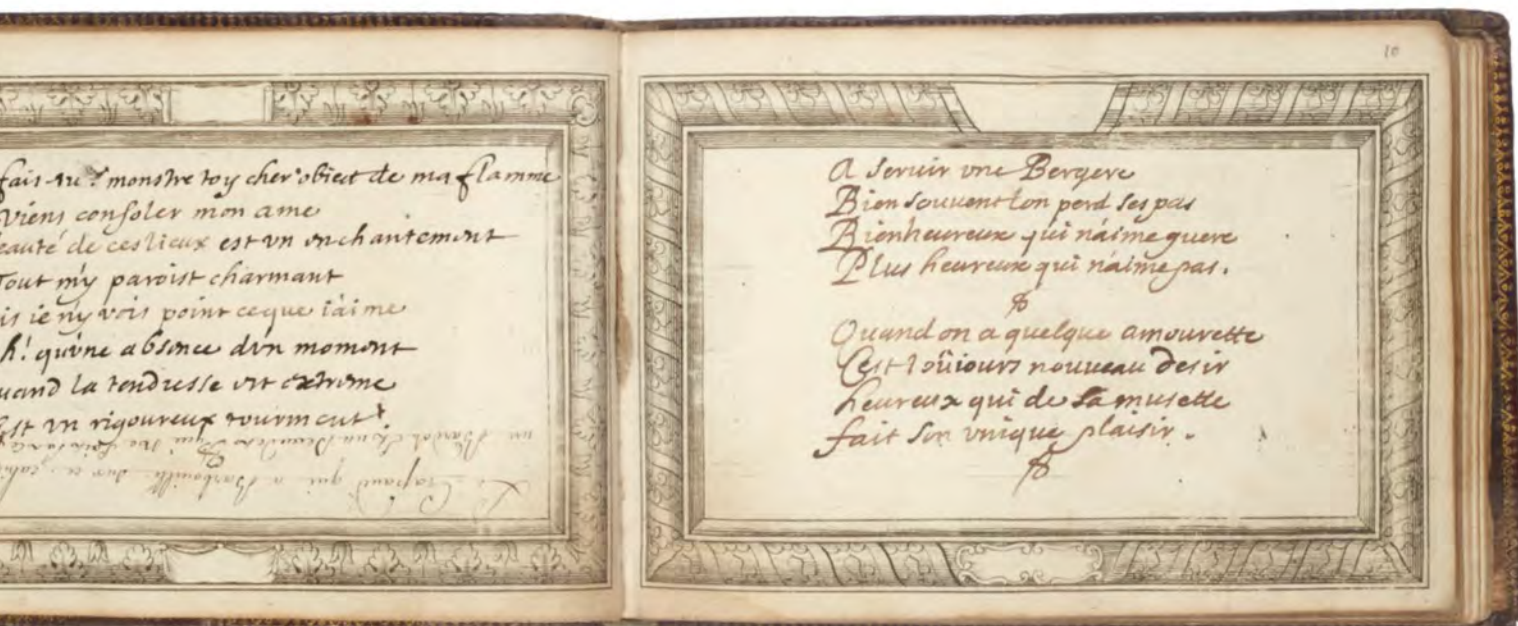 fais monstre toy cher obiect de ma flamme
Viens consoler mon ame
eauté de ces lieux est vn enchantement
Tout m'y paroist charmant
is ie n'y vois point ce que i'aime
h! qu'vne absence d'vn moment
uand la tendresse est extreme
Est vn rigoureux tourment!
un qui
Le Crapaud qui a Barbouillé sur ce
10
A seruir vne Bergere
Bien souuent lon perd ses pas
Bienheureux qui n'aime guere
Plus heureux qui n'aime pas.
Quand on a quelque amourette
C'est toûiours nouueau desir
heureux qui de sa musette
fait son vnique plaisir.